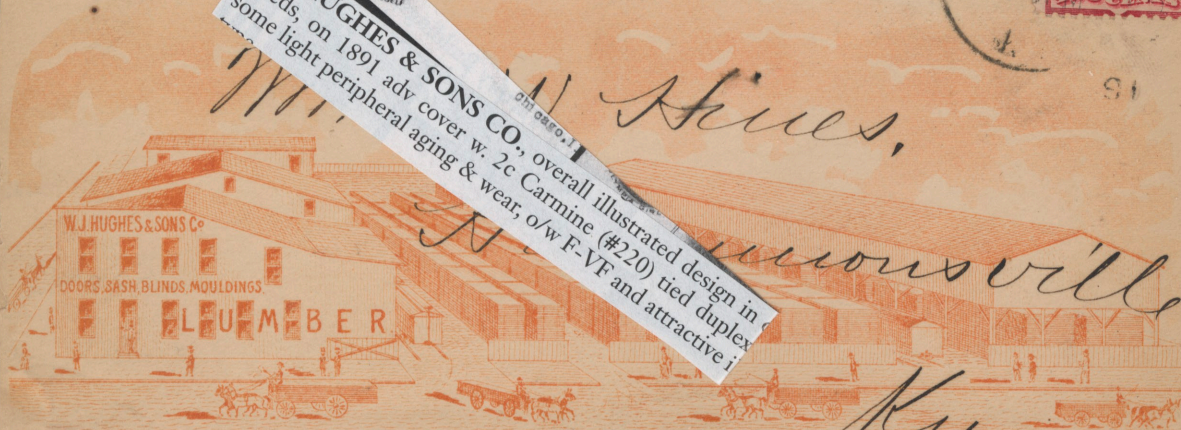 UGHES & SONS CO., overall illustrated design in
eds, on 1891 adv cover w. 2c Carmine (#220) tied duplex
some light peripheral aging & wear, o/w F-VF and attractive i
Chicago, I
W Hines,
91
W. J. HUGHES & SONS Co
DOORS, SASH, BLINDS, MOULDINGS,
LUMBER
monsville
Ky